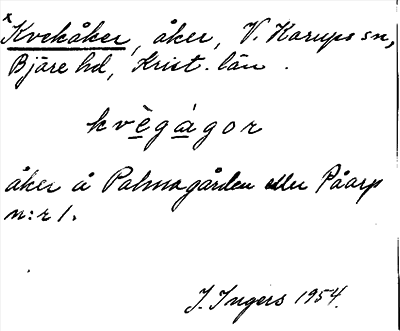 x Kvekåker, åker, V. Karups sn,
Bjäre hd, Krist. län.
kvègágor
åker å Palmsgården eller Påarp
n:r 1.
J. Ingers 1954.